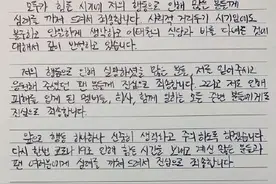 모두가 힘든 시기에 저의 행동으로 인해 많은 분들께
심려를 끼쳐 드려서 죄송합니다. 사회적 거리두기 시기임에도
불구하고 안일하게 생각하고 이태원의 식당과 바를 다녀온 것에
대해서 깊이 반성하고 있습니다.
저의 행동으로 인해 실망하셨을 많은 분들, 저를 믿어주시고
응원해 주셨던 팬 분들께 진심으로 죄송합니다. 그리고 저로 인해
피해를 입게 된 멤버들, 회사, 함께 일하는 모든 주변 분들에게도
진심으로 죄송합니다.
앞으로 행동 하나하나 신중히 생각하고 주의하도록 하겠습니다.
다시 한번 코로나 19로 인해 힘든 시간을 보내고 계신 많은 분들과
팬 여러분에게 심려를 끼쳐 드려서 진심으로 죄송합니다.